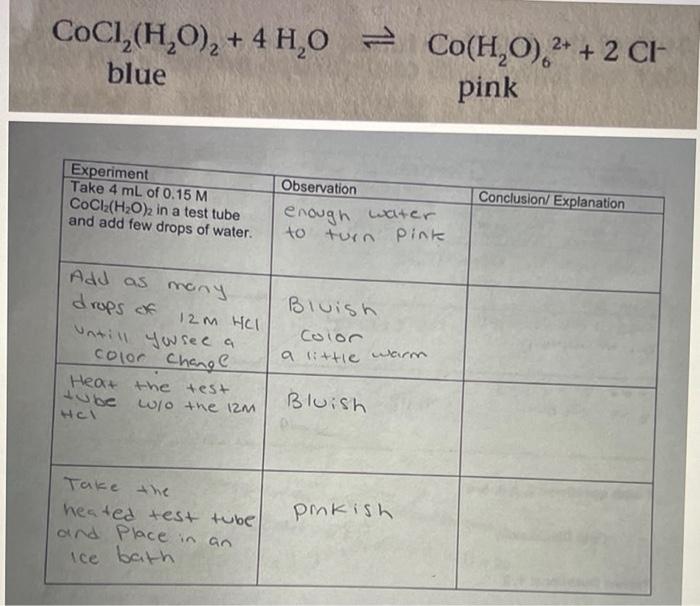 CoCl₂(H₂O)₂ + 4 H₂O ⇌ Co(H₂O)₆²⁺ + 2 Cl⁻
blue pink
Experiment
Observation
Conclusion/ Explanation
Take 4 mL of 0.15 M
CoCl₂(H₂O)₂ in a test tube
and add few drops of water.
enough water
to turn pink
Add as many
drops of 12M HCl
untill you see a
color change
Bluish
color
a little warm
Heat the test
tube w/o the 12M
HCl
Bluish
Take the
heated test tube
and Place in an
ice bath
pinkish